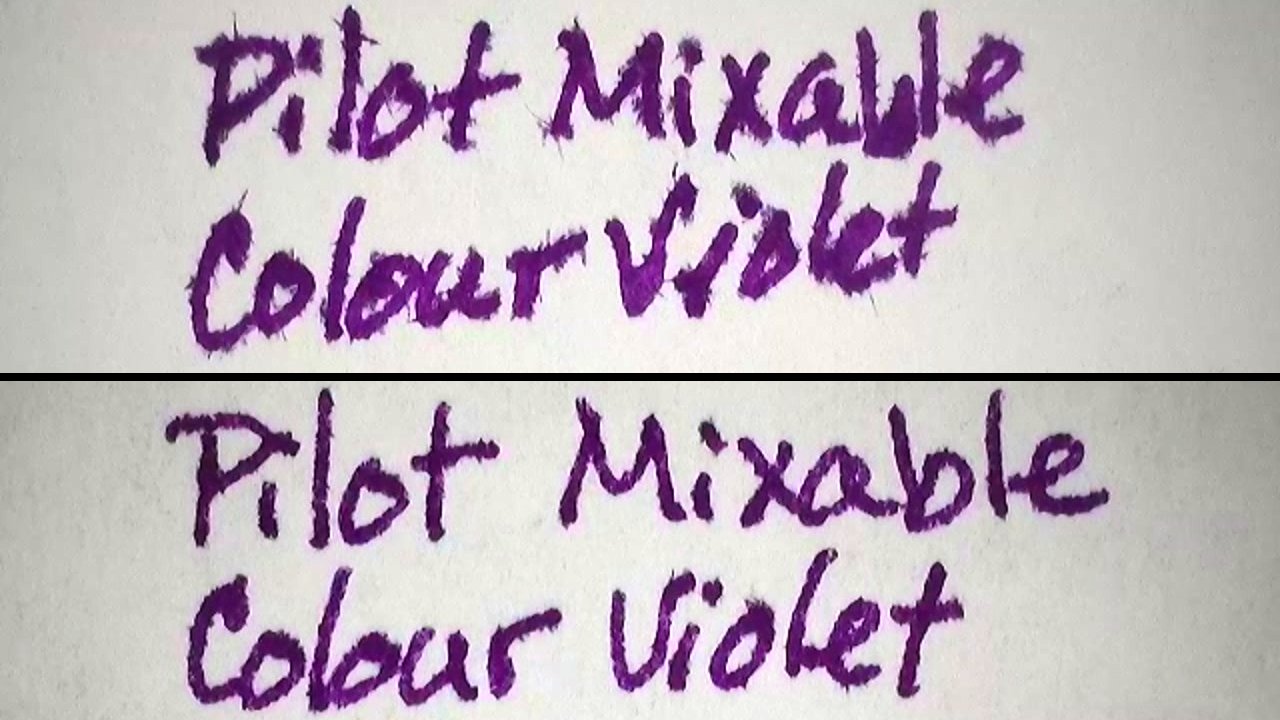 Pilot Mixable
Colour Violet
Pilot Mixable
Colour Violet